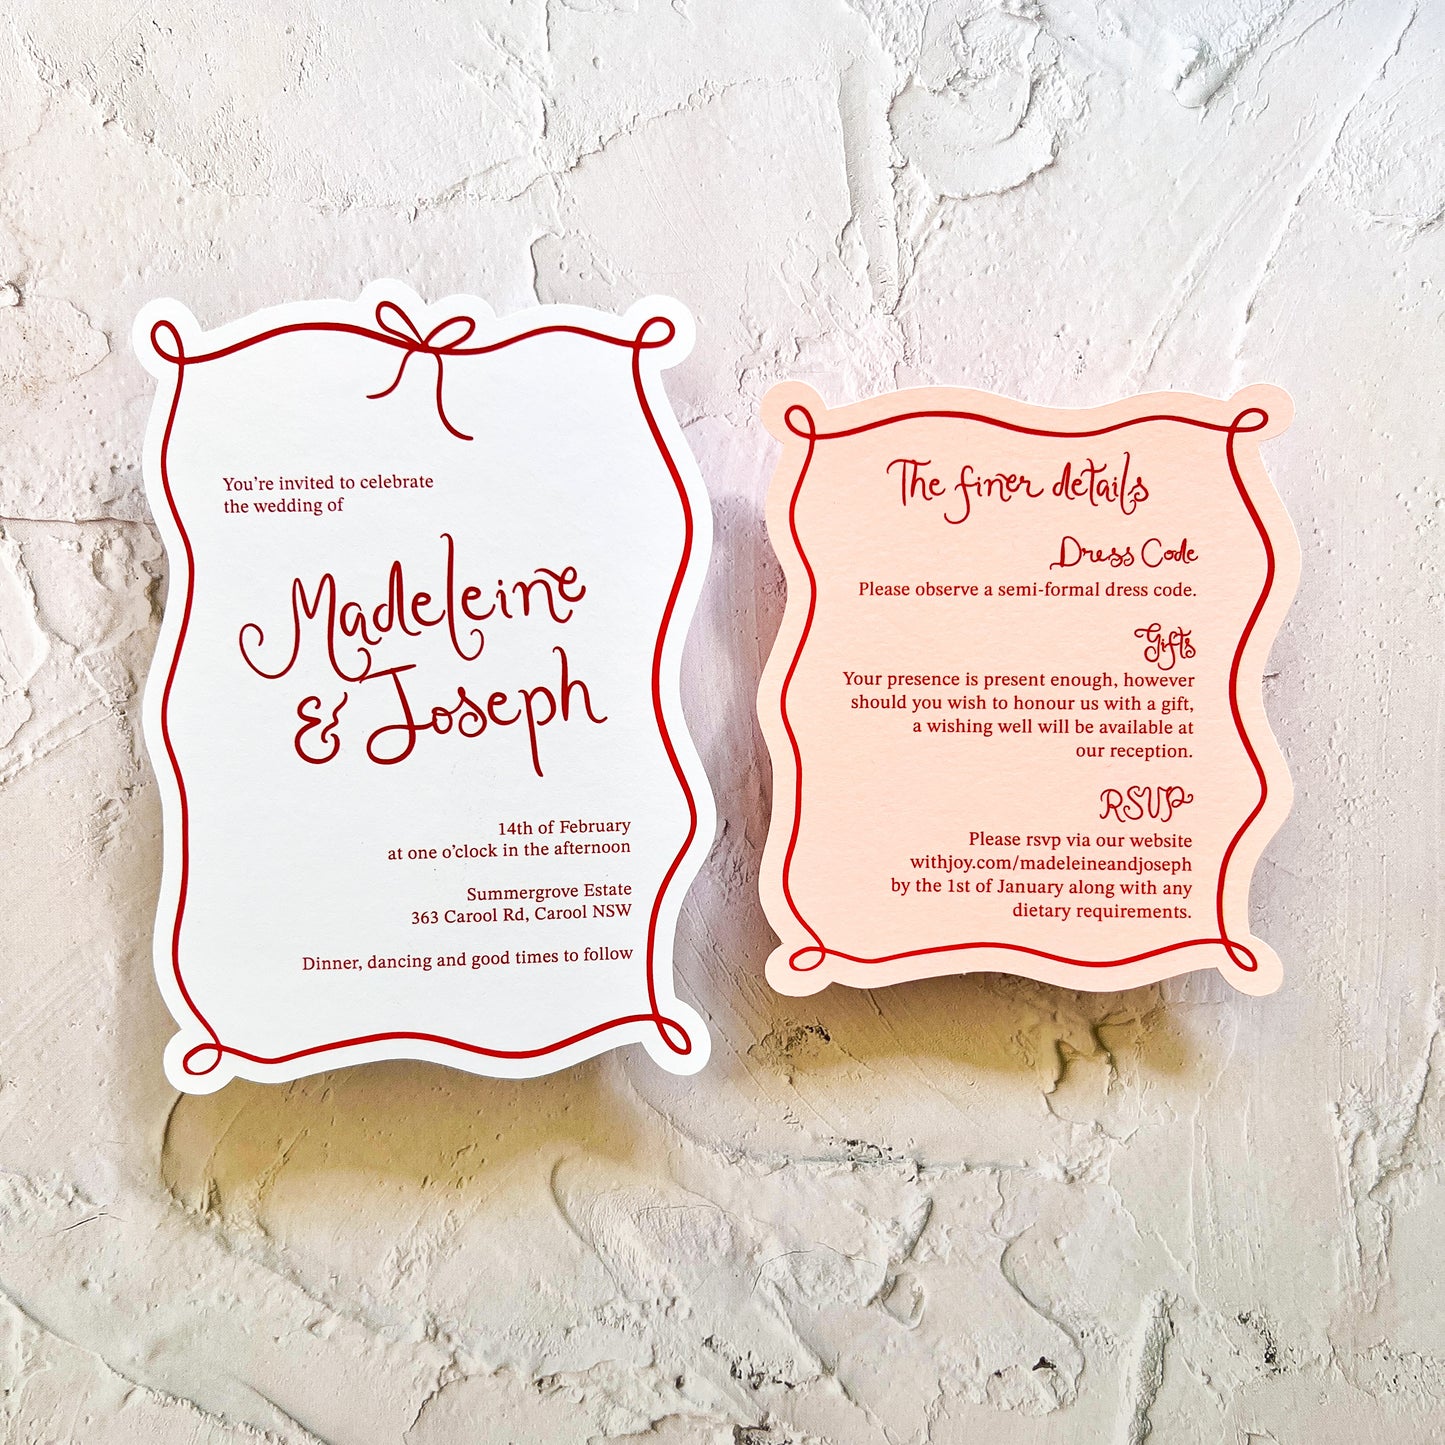 You're invited to celebrate
the wedding of
Madeleine
& Joseph
14th of February
at one o'clock in the afternoon
Summergrove Estate
363 Carool Rd, Carool NSW
Dinner, dancing and good times to follow
The finer details
Dress Code
Please observe a semi-formal dress code.
Gifts
Your presence is present enough, however
should you wish to honour us with a gift,
a wishing well will be available at
our reception.
RSVP
Please rsvp via our website
withjoy.com/madeleineandjoseph
by the 1st of January along with any
dietary requirements.